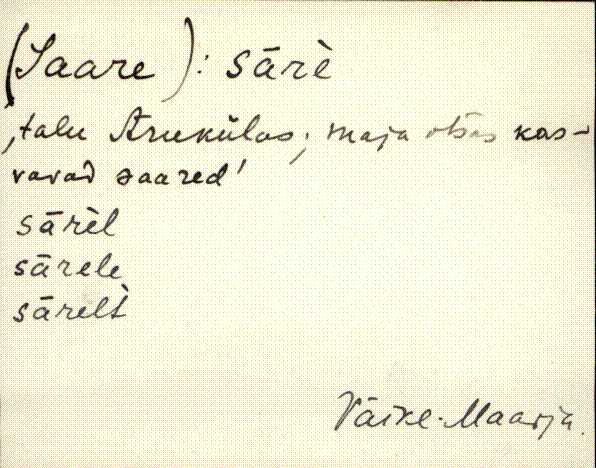 (Saare): sārè
‚talu Arukülas; maja otsas kas-
vavad saared’
sārèl
sārele
sārelt̀
Väike-Maarja.